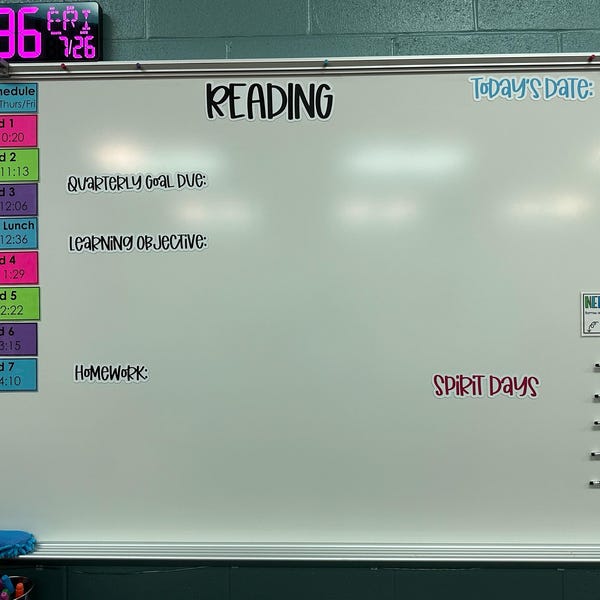 36 FRI
7/26
READING
TODAY'S DATE:
QUARTERLY GOAL DUE:
LEARNING OBJECTIVE:
HOMEWORK:
SPIRIT DAYS
hedule
Thurs/Fri
d 1
0:20
d 2
11:13
d 3
12:06
Lunch
12:36
d 4
1:29
d 5
2:22
d 6
3:15
d 7
4:10